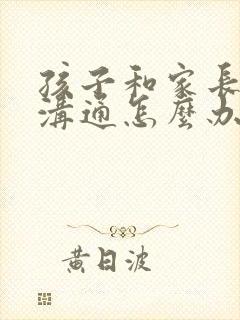 孩子和家長
溝通怎麼办
黄日波